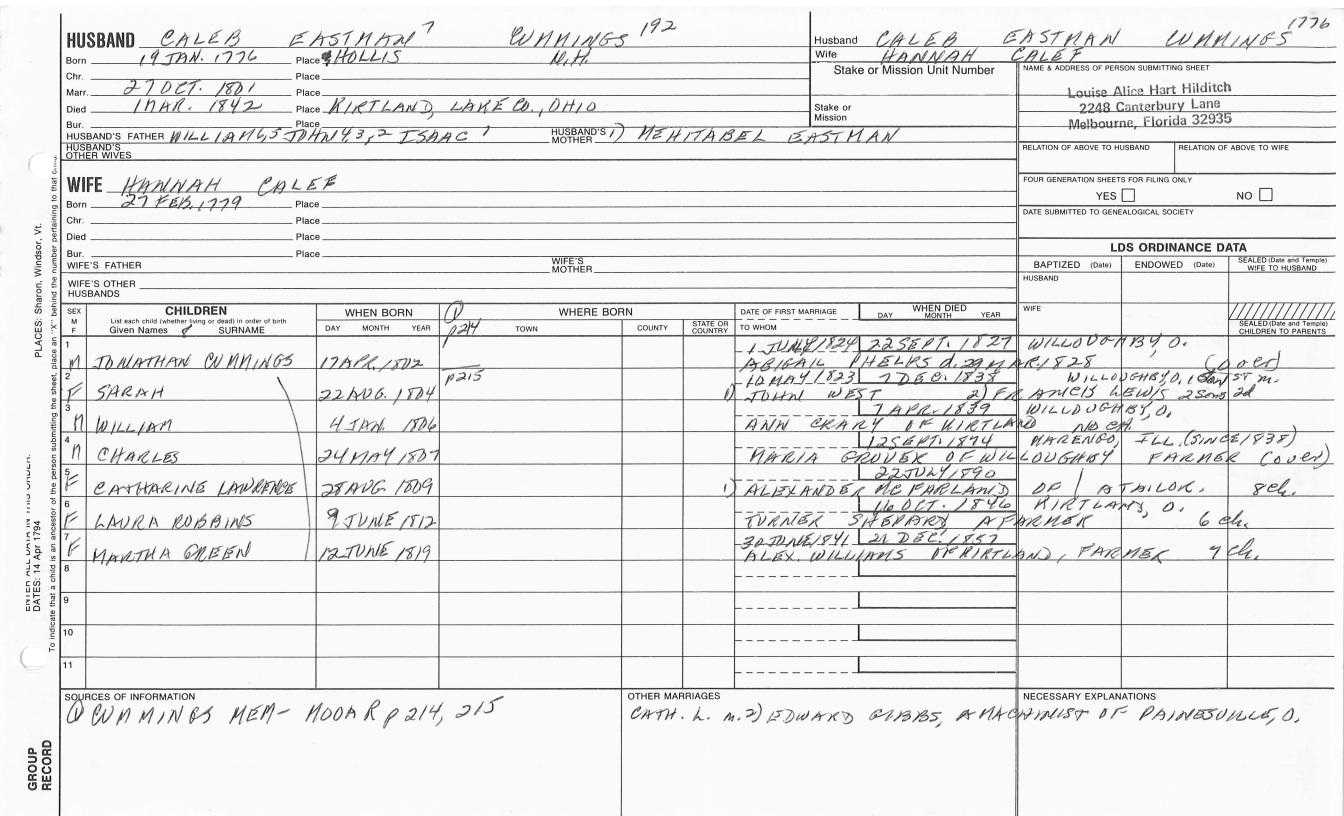 1776
HUSBAND CALEB EASTMAN 7 CUMMINGS 192
Husband CALEB EASTMAN CUMMINGS
Born 19 JAN. 1776 Place HOLLIS N.H.
Wife HANNAH CALEF
Chr. Place
Stake or Mission Unit Number
NAME & ADDRESS OF PERSON SUBMITTING SHEET
Louise Alice Hart Hilditch
2248 Canterbury Lane
Melbourne, Florida 32935
Marr. 27 OCT. 1801 Place
Died 1 MAR. 1842 Place KIRTLAND, LAKE CO., OHIO
Stake or Mission
Bur. Place
HUSBAND'S FATHER WILLIAM 6,5 JOHN 4,3,2 ISAAC 1 HUSBAND'S MOTHER 1) MEHITABEL EASTMAN
HUSBAND'S OTHER WIVES
RELATION OF ABOVE TO HUSBAND RELATION OF ABOVE TO WIFE
WIFE HANNAH CALEF
FOUR GENERATION SHEETS FOR FILING ONLY
YES NO
Born 27 FEB. 1779 Place
Chr. Place
DATE SUBMITTED TO GENEALOGICAL SOCIETY
Died Place
Bur. Place
LDS ORDINANCE DATA
WIFE'S FATHER WIFE'S MOTHER
BAPTIZED (Date) ENDOWED (Date) SEALED (Date and Temple) WIFE TO HUSBAND
WIFE'S OTHER HUSBANDS
HUSBAND
SEX M F CHILDREN WHEN BORN 1 WHERE BORN DATE OF FIRST MARRIAGE WHEN DIED WIFE
List each child (whether living or dead) in order of birth
Given Names SURNAME DAY MONTH YEAR p214 TOWN COUNTY STATE OR COUNTRY TO WHOM DAY MONTH YEAR SEALED (Date and Temple) CHILDREN TO PARENTS
1 1 JULY 1824 22 SEPT. 1827 WILLOUGHBY, O.
M JONATHAN CUMMINGS 17 APR. 1802 ABIGAIL PHELPS d. 29 MAR. 1828 (over)
2 p215 10 MAY 1823 7 DEC. 1838 WILLOUGHBY, O. 1 1ST m.
F SARAH 22 AUG. 1804 1) JOHN WEST 2) FRANCIS LEWIS 2 sons 2d
3 7 APR. 1839 WILLOUGHBY, O.
M WILLIAM 4 JAN. 1806 ANN CRARY OF KIRTLAND NO CH.
4 12 SEPT. 1874 MARENGO, ILL. (SINCE 1838)
M CHARLES 24 MAY 1807 MARIA GROVER OF WILLOUGHBY FARMER (over)
5 22 JULY 1890
F CATHARINE LAWRENCE 28 AUG 1809 1) ALEXANDER MCFARLAND OF A TAILOR. 8 ch.
6 16 OCT. 1846 KIRTLAND, O.
F LAURA ROBBINS 9 JUNE 1812 TURNER SHEPARD A FARMER 6 ch.
7 30 JUNE 1841 21 DEC. 1857
F MARTHA GREEN 12 JUNE 1819 ALEX. WILLIAMS OF KIRTLAND, FARMER 4 ch.
8
9
10
11
SOURCES OF INFORMATION OTHER MARRIAGES NECESSARY EXPLANATIONS
1 CUMMINGS MEM- MOOAR p 214, 215 CATH. L. m. 2) EDWARD GIBBS, A MACHINIST OF PAINESVILLE, O.
GROUP RECORD
ENTER ALL DATA IN THIS ORDER:
DATES: 14 Apr 1794 PLACES: Sharon, Windsor, Vt.
To indicate that a child is an ancestor of the person submitting the sheet, place an "X" behind the number pertaining to that